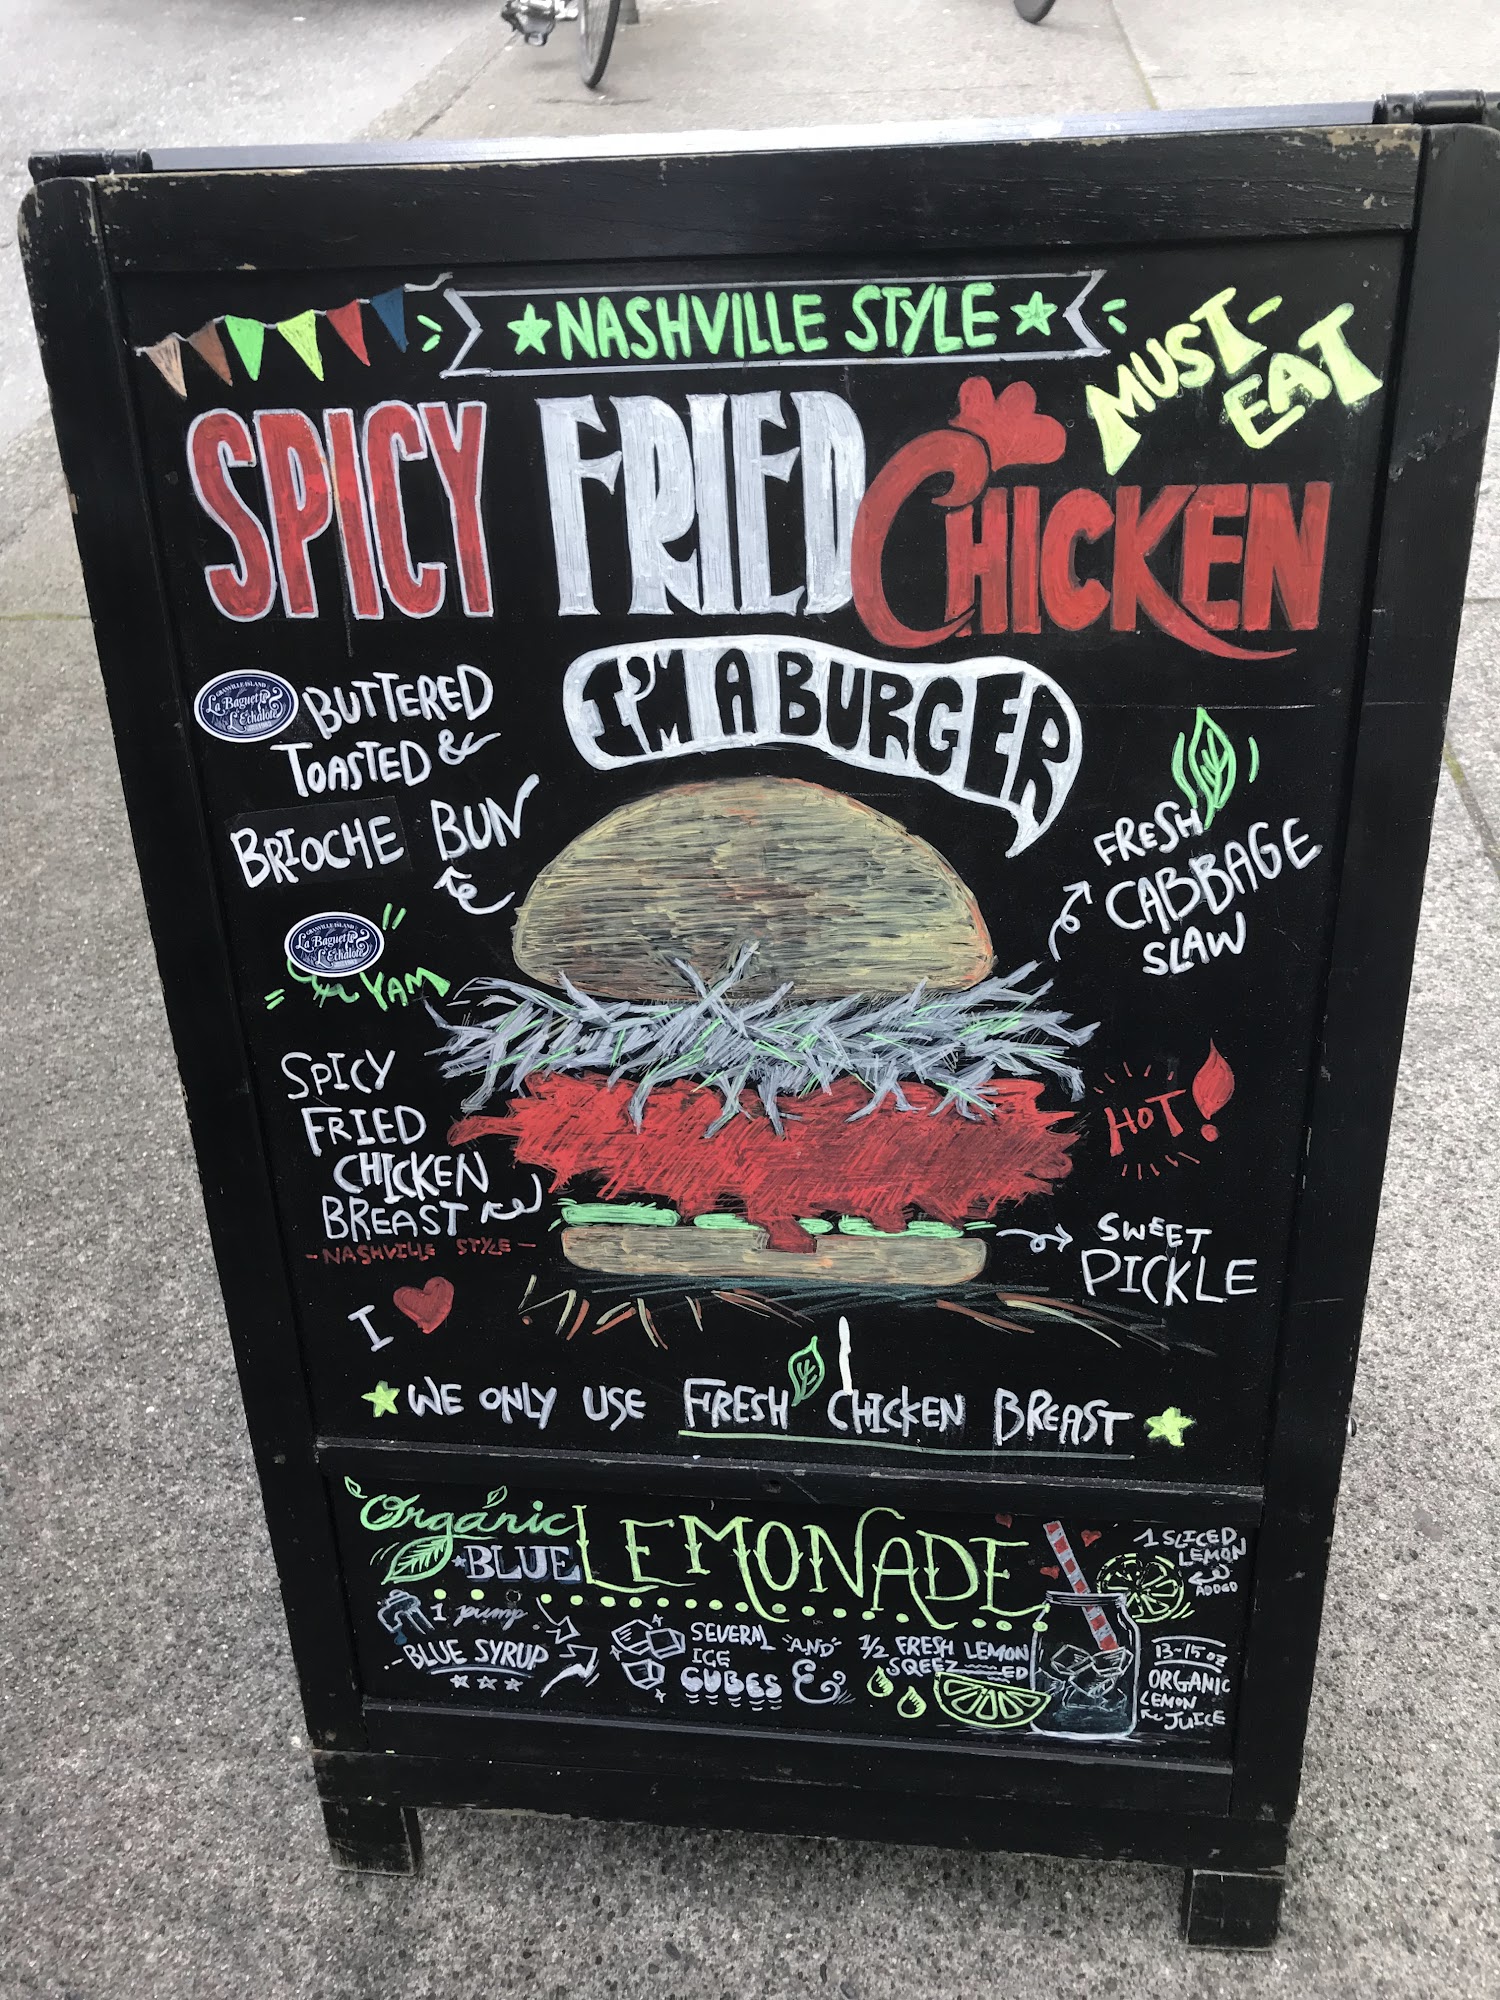 ★NASHVILLE STYLE★
MUST-
EAT
SPICY FRIED CHICKEN
I'M A BURGER
GRANVILLE ISLAND
La Baguette
L'Echalote
BUTTERED
TOASTED &
BRIOCHE BUN
FRESH
CABBAGE
SLAW
GRANVILLE ISLAND
La Baguette
L'Echalote
YAM
SPICY
FRIED
CHICKEN
BREAST
-NASHVILLE STYLE-
HOT!
SWEET
PICKLE
I ♥
★WE ONLY USE FRESH CHICKEN BREAST★
Organic
BLUE LEMONADE
1 SLICED
LEMON
1 pump
BLUE SYRUP
SEVERAL
ICE
CUBES
"AND"
&
1/2 FRESH LEMON
SQEEZ ED
13-15 oz
ORGANIC
LEMON
JUICE